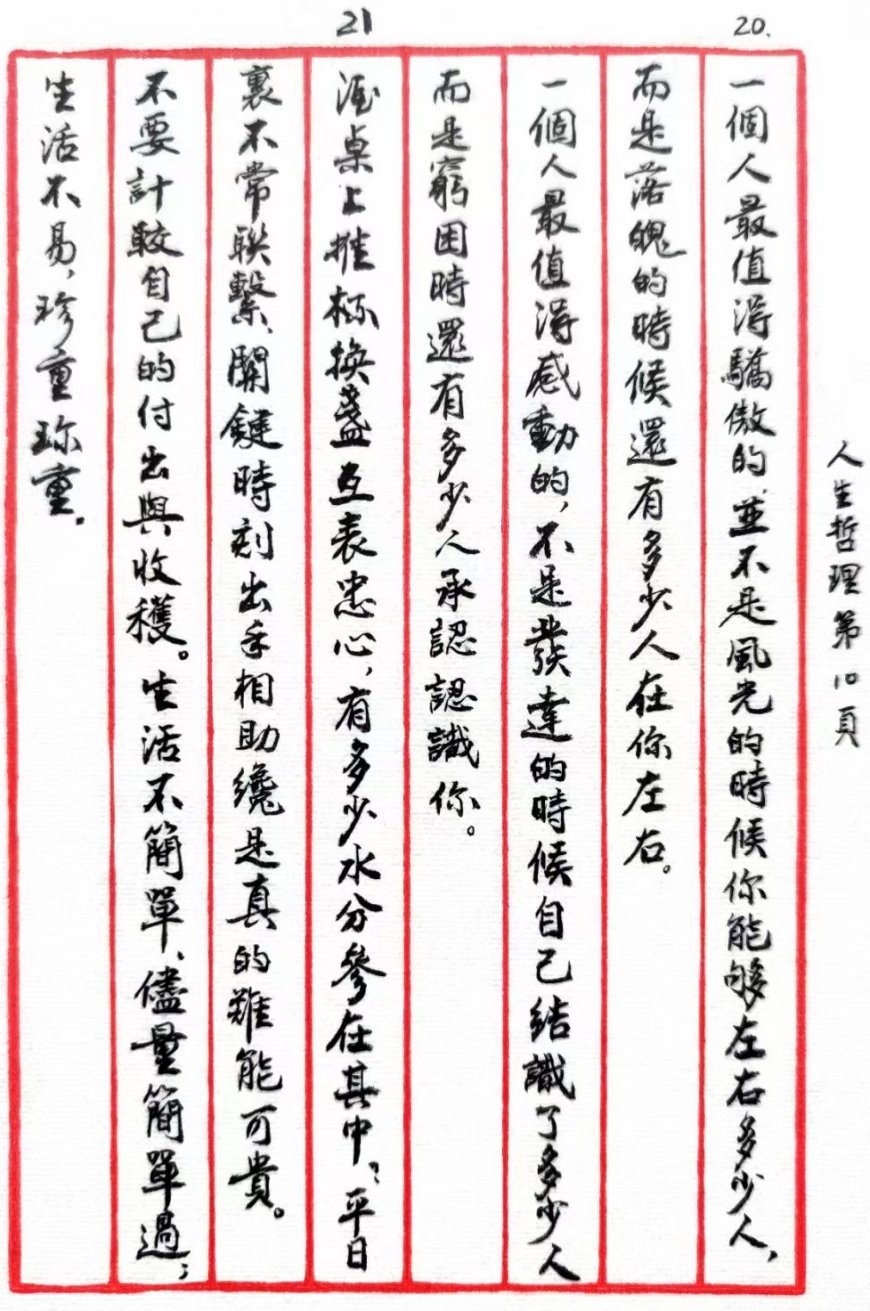 人生哲理第10頁
20.
一個人最值得驕傲的並不是風光的時候你能够左右多少人，
而是落魄的時候還有多少人在你左右。
一個人最值得感動的，不是發達的時候自己結識了多少人
而是窮困時還有多少人承認認識你。
21
酒桌上推杯換盞互表忠心，有多少水分參在其中？平日
裏不常聯繫、關鍵時刻出手相助纔是真的難能可貴。
不要計較自己的付出與收穫。生活不簡單、儘量簡單過；
生活不易，珍重珎重。